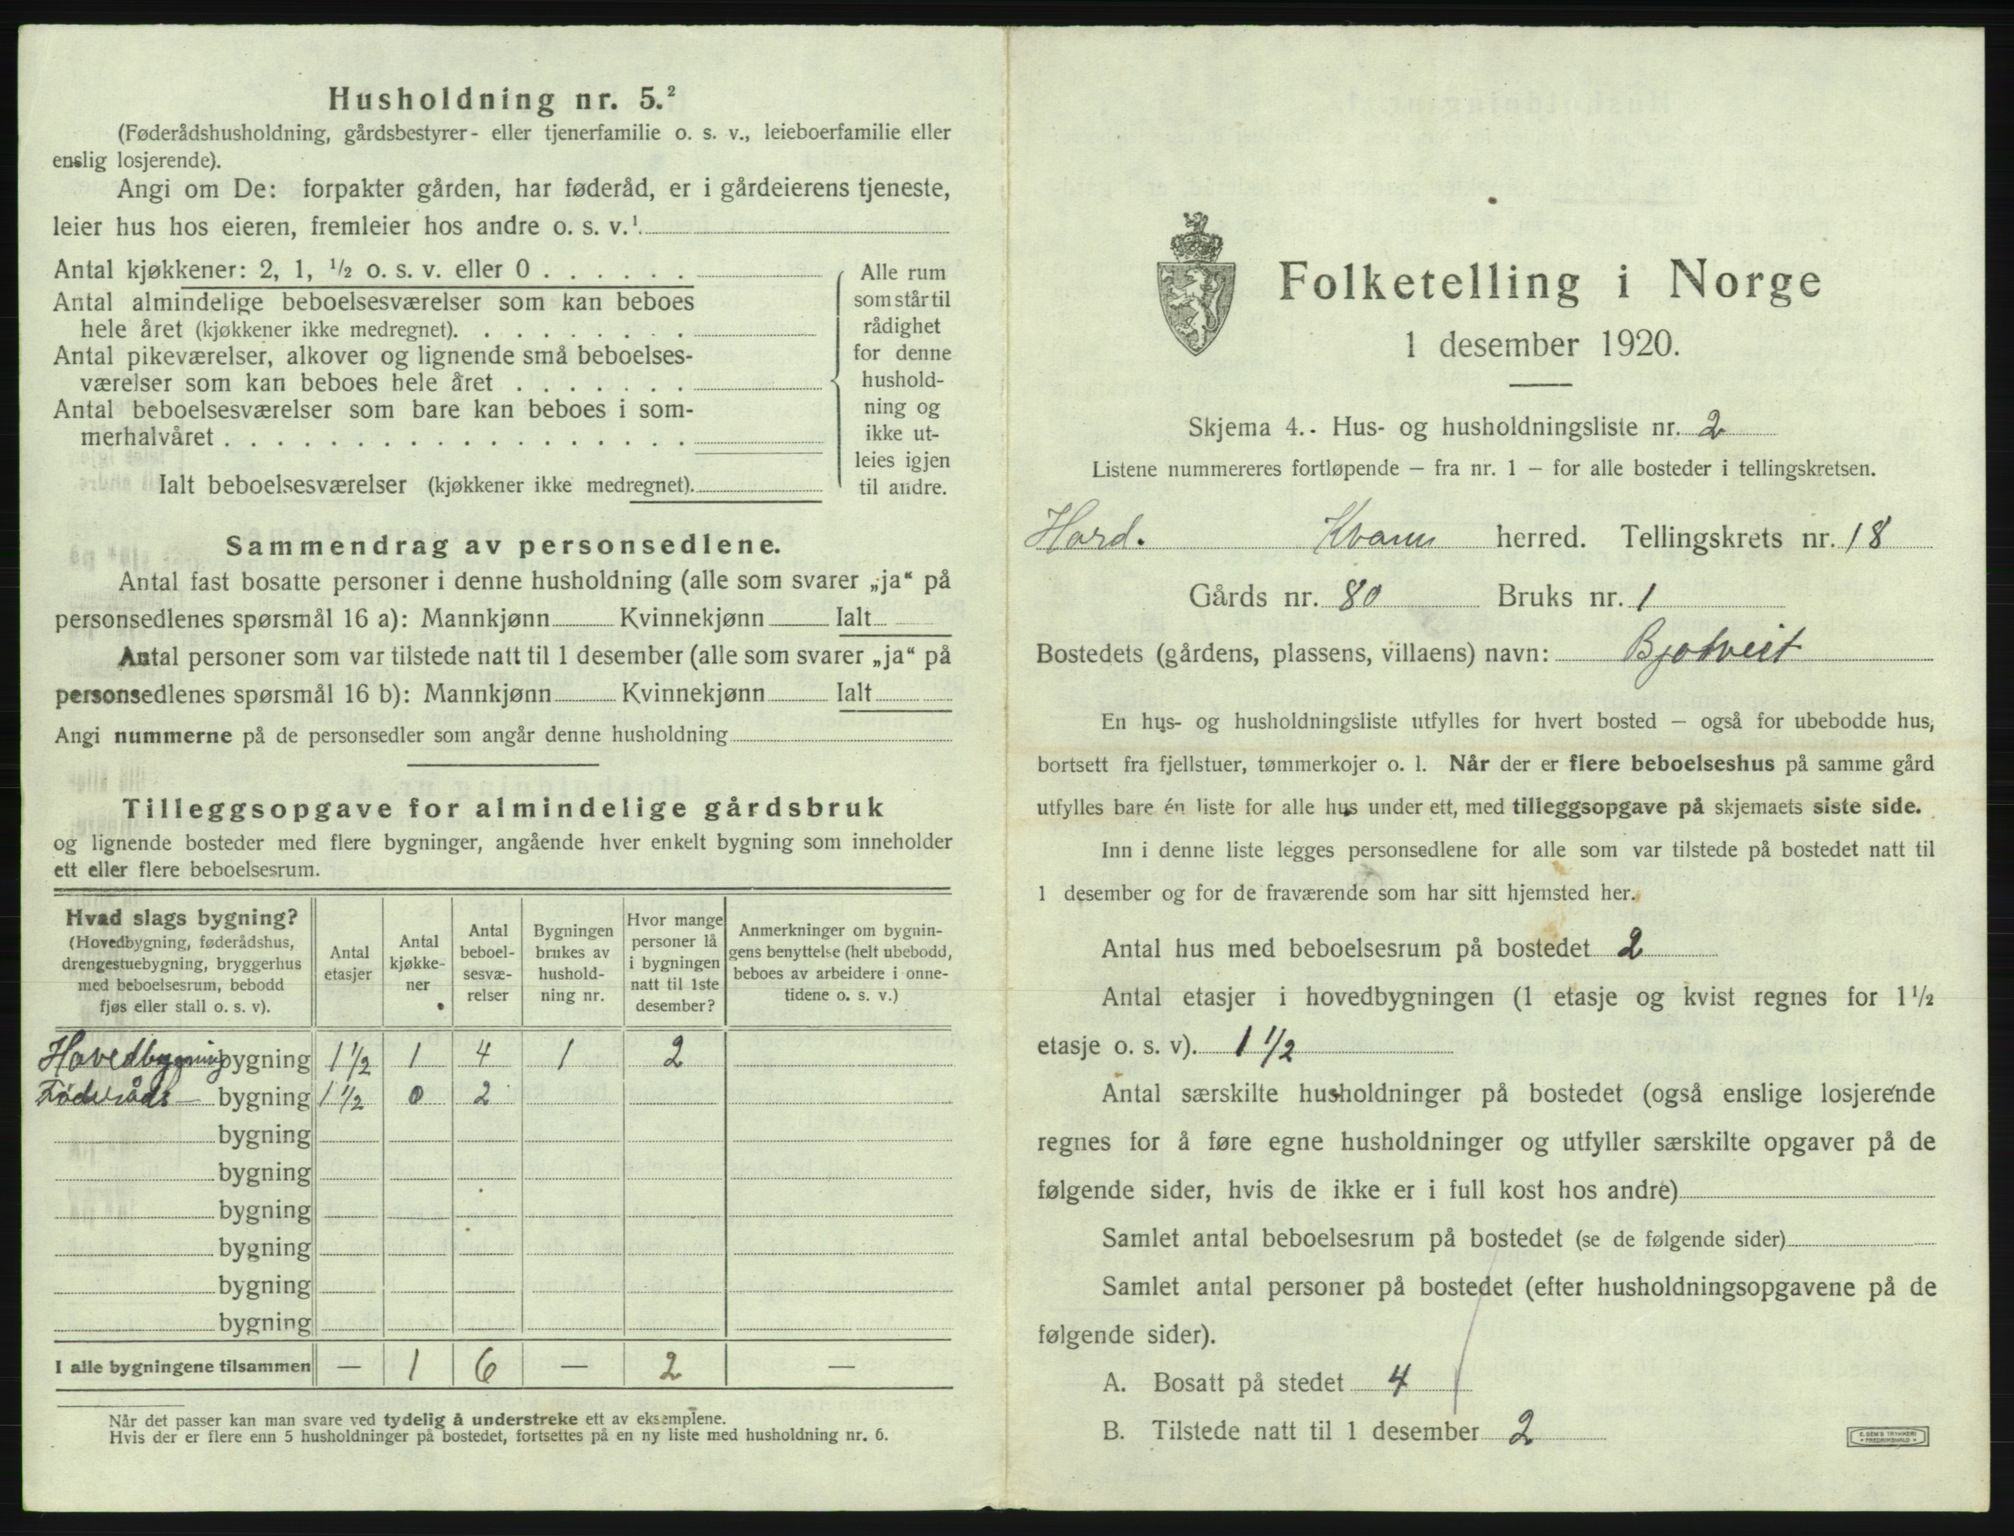 Husholdning nr. 5.²
(Føderådshusholdning, gårdsbestyrer- eller tjenerfamilie o. s. v., leieboerfamilie eller
enslig losjerende).
Angi om De: forpakter gården, har føderåd, er i gårdeierens tjeneste,
leier hus hos eieren, fremleier hos andre o. s. v.¹
Antal kjøkkener: 2, 1, ½ o. s. v. eller 0 . . . . . .
Antal almindelige beboelsesværelser som kan beboes
hele året (kjøkkener ikke medregnet). . . . . . . .
Antal pikeværelser, alkover og lignende små beboelses-
værelser som kan beboes hele året . . . . . . .
Antal beboelsesværelser som bare kan beboes i som-
merhalvåret . . . . . . . . . . . . . . . . . .
Ialt beboelsesværelser (kjøkkener ikke medregnet).
Alle rum
som står til
rådighet
for denne
hushold-
ning og
ikke ut-
leies igjen
til andre.
Sammendrag av personsedlene.
Antal fast bosatte personer i denne husholdning (alle som svarer „ja“ på
personsedlenes spørsmål 16 a): Mannkjønn Kvinnekjønn Ialt
Antal personer som var tilstede natt til 1 desember (alle som svarer „ja“ på
personsedlenes spørsmål 16 b): Mannkjønn Kvinnekjønn Ialt
Angi nummerne på de personsedler som angår denne husholdning
Tilleggsopgave for almindelige gårdsbruk
og lignende bosteder med flere bygninger, angående hver enkelt bygning som inneholder
ett eller flere beboelsesrum.
Hvad slags bygning?
(Hovedbygning, føderådshus,
drengestuebygning, bryggerhus
med beboelsesrum, bebodd
fjøs eller stall o. s. v).
Antal
etasjer
Antal
kjøkke-
ner
Antal
beboel-
sesvæ-
relser
Bygningen
brukes av
hushold-
ning nr.
Hvor mange
personer lå
i bygningen
natt til 1ste
desember?
Anmerkninger om bygnin-
gens benyttelse (helt ubebodd,
beboes av arbeidere i onne-
tidene o. s. v.)
Hovedbygning bygning 1 1/2 1 4 1 2
Føderåds- bygning 1 1/2 0 2
bygning
bygning
bygning
bygning
bygning
bygning
I alle bygningene tilsammen — 1 6 — 2 —
Når det passer kan man svare ved tydelig å understreke ett av eksemplene.
Hvis der er flere enn 5 husholdninger på bostedet, fortsettes på en ny liste med husholdning nr. 6.
Folketelling i Norge
1 desember 1920.
Skjema 4. Hus- og husholdningsliste nr. 2
Listene nummereres fortløpende – fra nr. 1 – for alle bosteder i tellingskretsen.
Hard. Kvam herred. Tellingskrets nr. 18
Gårds nr. 80 Bruks nr. 1
Bostedets (gårdens, plassens, villaens) navn: Bjotveit
En hus- og husholdningsliste utfylles for hvert bosted – også for ubebodde hus,
bortsett fra fjellstuer, tømmerkojer o. l. Når der er flere beboelseshus på samme gård
utfylles bare én liste for alle hus under ett, med tilleggsopgave på skjemaets siste side.
Inn i denne liste legges personsedlene for alle som var tilstede på bostedet natt til
1 desember og for de fraværende som har sitt hjemsted her.
Antal hus med beboelsesrum på bostedet 2
Antal etasjer i hovedbygningen (1 etasje og kvist regnes for 1½
etasje o. s. v). 1 1/2
Antal særskilte husholdninger på bostedet (også enslige losjerende
regnes for å føre egne husholdninger og utfyller særskilte opgaver på de
følgende sider, hvis de ikke er i full kost hos andre)
Samlet antal beboelsesrum på bostedet (se de følgende sider)
Samlet antal personer på bostedet (efter husholdningsopgavene på de
følgende sider).
A. Bosatt på stedet 4
B. Tilstede natt til 1 desember 2